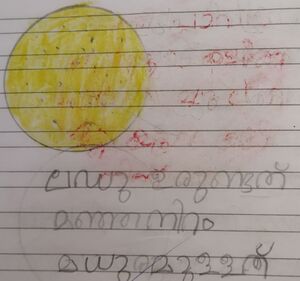 ലഡു ഉരുണ്ടത്
മഞ്ഞനിറം
മധുരമുള്ളത്